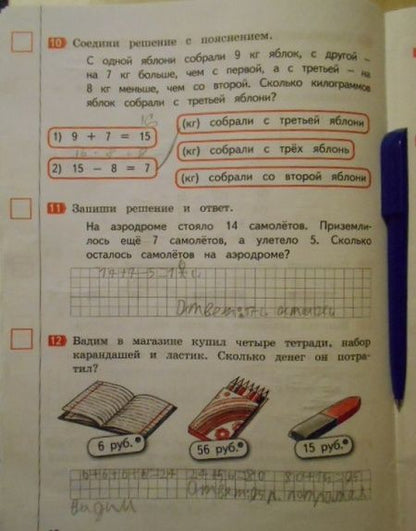 10 Соедини решение с пояснением.
С одной яблони собрали 9 кг яблок, с другой –
на 7 кг больше, чем с первой, а с третьей – на
8 кг меньше, чем со второй. Сколько килограммов
яблок собрали с третьей яблони?
16
1) 9 + 7 = 15
2) 15 – 8 = 7
(кг) собрали с третьей яблони
(кг) собрали с трёх яблонь
(кг) собрали со второй яблони
11 Запиши решение и ответ.
На аэродроме стояло 14 самолётов. Приземли-
лось ещё 7 самолётов, а улетело 5. Сколько
осталось самолётов на аэродроме?
Ответ:
12 Вадим в магазине купил четыре тетради, набор
карандашей и ластик. Сколько денег он потра-
тил?
6 руб.
56 руб.
15 руб.
Ответ:
Вадим